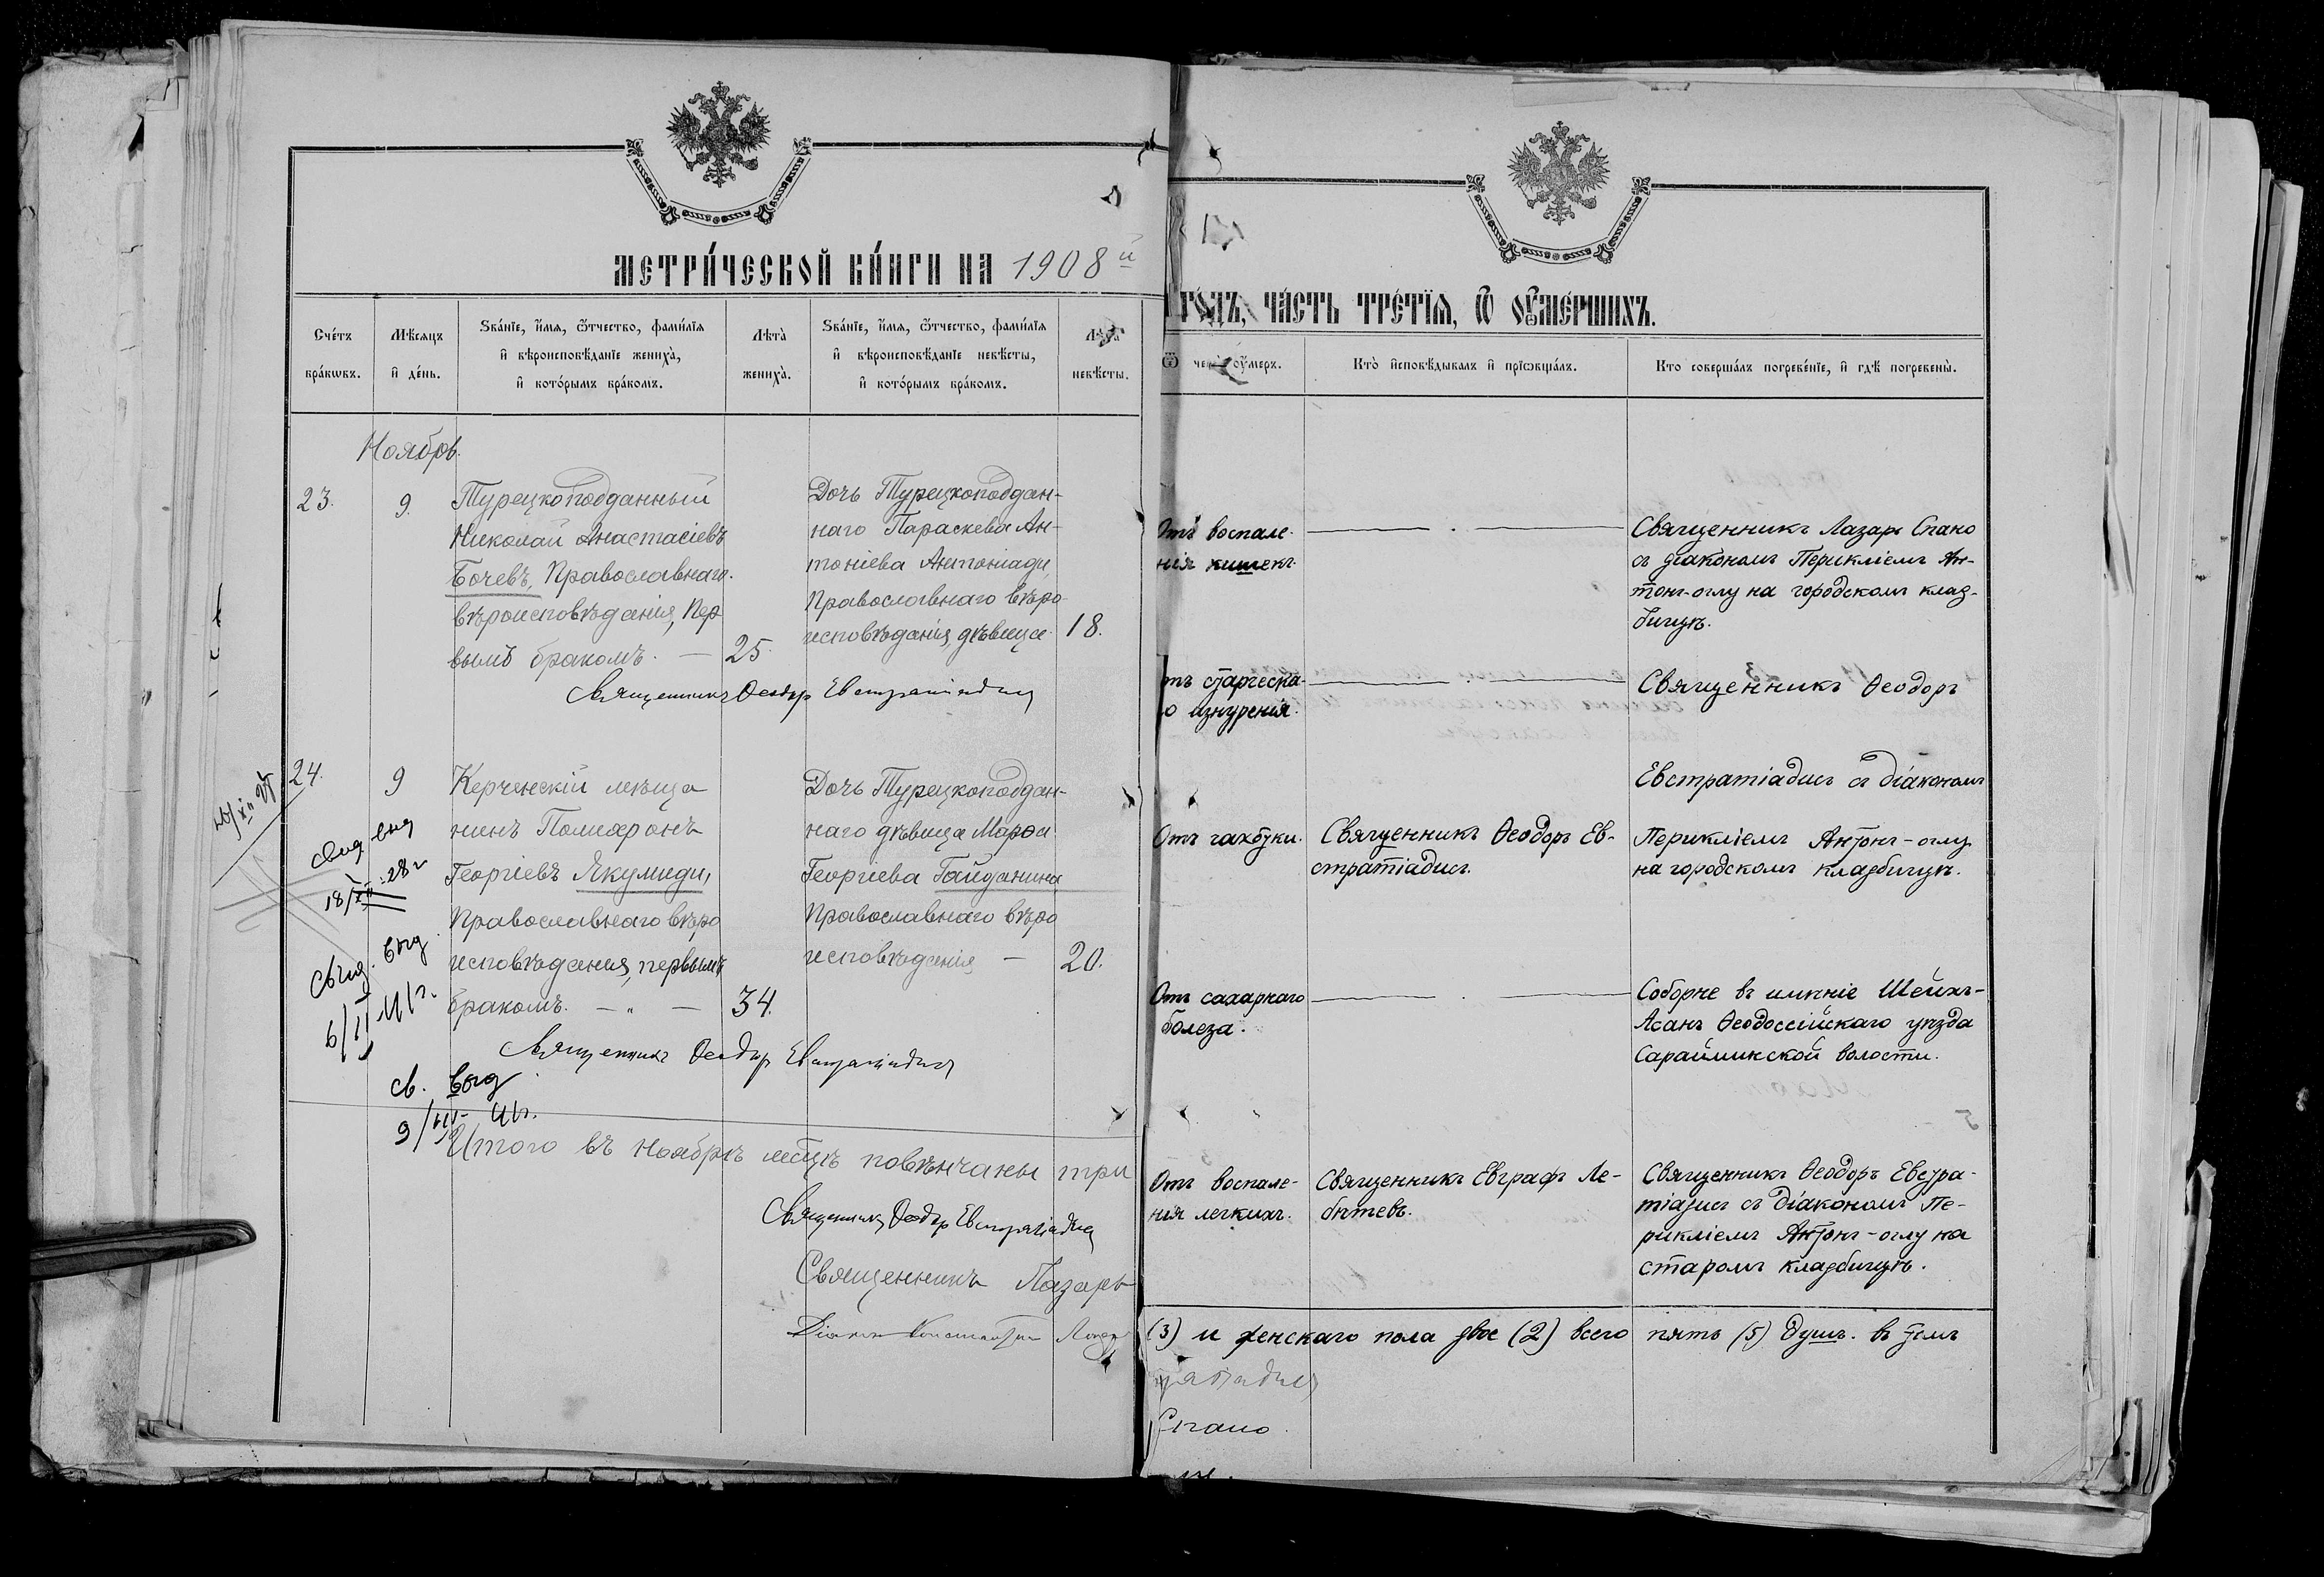 МЕТРИ́ЧЕСКОЙ КНИ́ГИ НА 1908й
Сче́тъ
бра́кѡвъ.
Мѣ́сяцъ
и҆ де́нь.
Ѕва́нїе, и҆́мѧ, ѻ҆́тчество, фами́лїѧ
и҆ вѣроисповѣ́данїе женихà,
и҆ кото́рымъ бра́комъ.
Лѣта̀
жениха̀.
Ѕва́нїе, и҆́мѧ, ѻ҆́тчество, фами́лїѧ
и҆ вѣроисповѣ́данїе невѣ́сты,
и҆ кото́рымъ бра́комъ.
Лѣта̀
невѣ́сты.
Ноябрь.
23.
9.
Турецкоподданный
Николай Анастасіевъ
Бочевъ, Православнаго
вѣроисповѣданія, пер
вымъ бракомъ. —
25.
Дочь Турецкоподдан-
наго Параскева Ан-
тоніева Антоніади,
Православнаго вѣро-
исповѣданія, дѣвица.
18.
Священникъ Ѳеодоръ Евстратіадис
24.
9
Керченскій мѣща
нинъ Поликронъ
Георгіевъ Якумиди,
Православнаго вѣро
исповѣданія, первымъ
бракомъ. — „ —
34.
Дочь Турецкоподдан-
наго дѣвица Марѳа
Георгіева Гайданина
Православнаго вѣро
исповѣданія —
20.
Священникъ Ѳеодоръ Евстратіадис
свид выд
18/XII 28 г
свид. выд.
6/II 11 г.
св. выд.
9/III 11 г.
Итого въ ноябрѣ мѣсцѣ повѣнчаны три
Священникъ Ѳеодоръ Евстратіадис
Священникъ Лазарь
Діаконъ Константин
ГОДЪ, ЧА́СТЬ ТРЕ́ТЇѦ, Ѿ ОУ҆МЕ́РШИХЪ.
Ѿ чегѡ̀ оу҆́меръ.
Кто̀ и҆сповѣ́дывалъ и҆ прїѡбща́лъ.
Кто соверша́лъ погребе́нїе, и҆ гдѣ̀ погребены̀.
Отъ воспале-
нія кишекъ.
Священникъ Лазарь Спано
съ діакономъ Перикліемъ Ан-
тонъ-оглу на городскомъ клад-
бищѣ.
тъ старческа-
о изнуренія.
Священникъ Ѳеодоръ
Евстратіадисъ съ діакономъ
Отъ чахотки.
Священникъ Ѳеодоръ Ев-
стратіадисъ.
Перикліемъ Антонъ-оглу
на городскомъ кладбищѣ.
Отъ сахарнаго
болеза.
Соборне въ имѣніе Шейхъ-
Асанъ Ѳеодоссійскаго уѣзда
Сарайминской волости.
Отъ воспале-
нія легкихъ.
Священникъ Евграфъ Ле-
битевъ.
Священникъ Ѳеодоръ Евстра-
тіадисъ съ діакономъ Пе-
рикліемъ Антонъ-оглу на
старомъ кладбищѣ.
(3) и женскаго пола двое (2) всего пять (5) душъ. въ томъ
тратіадис
Спано